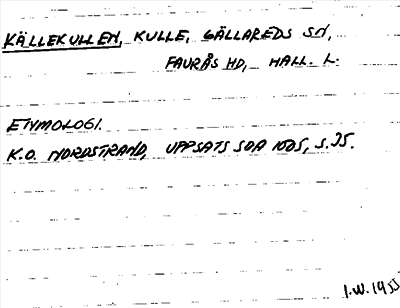 KÄLLEKULLEN, KULLE, GÄLLAREDS SN,
FAURÅS HD, HALL. L.
ETYMOLOGI.
K.O. NORDSTRAND, UPPSATS SOA 1005, S.35.
I.W. 1955